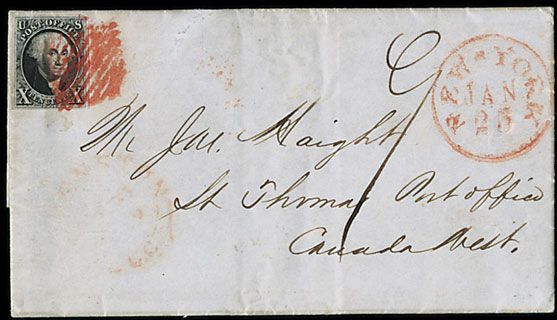 U S
POST OFFICE
X X
NEW-YORK
JAN
25
9
Mr Jac. Haight
St Thomas Post office
Canada West.